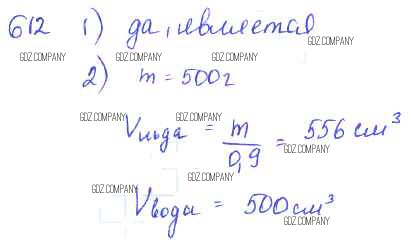 612 1) да, является
GDZ.COMPANY GDZ.COMPANY GDZ.COMPANY GDZ.COMPANY
2) m = 500г
GDZ.COMPANY GDZ.COMPANY
Vльда = m/0,9 = 556 см³
GDZ.COMPANY
GDZ.COMPANY
GDZ.COMPANY
Vвода = 500 см³
GDZ.COMPANY